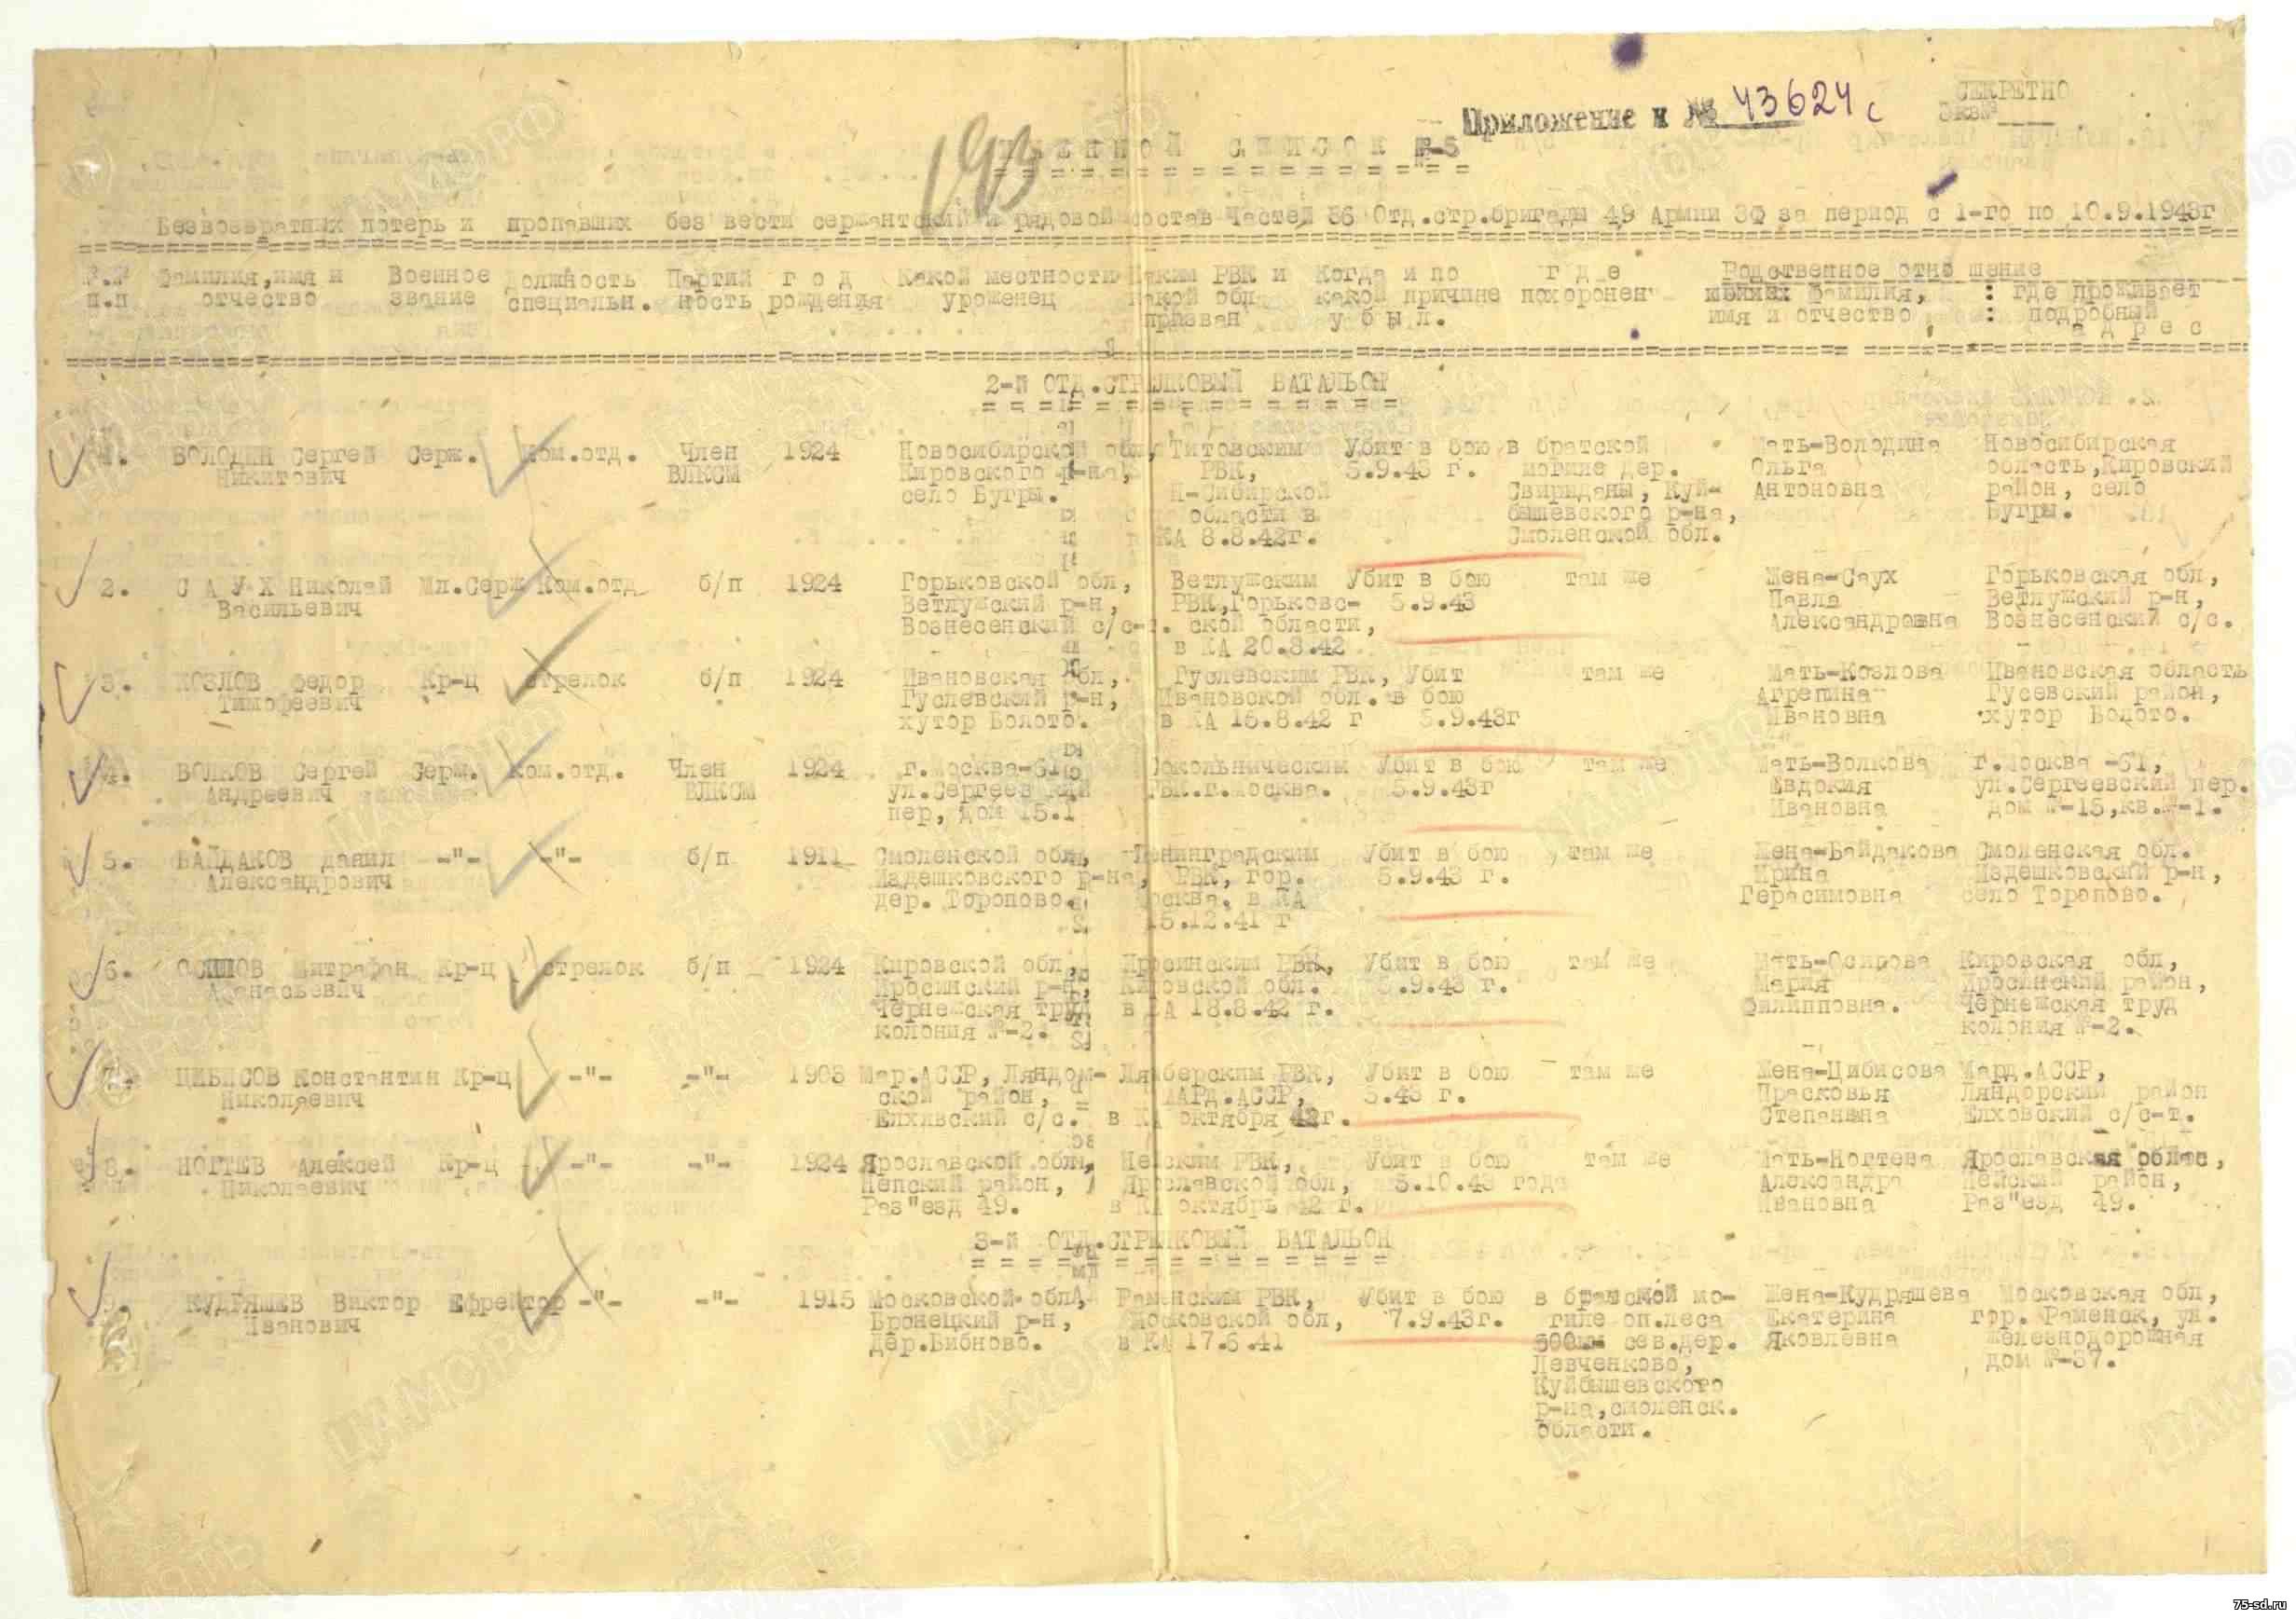 СЕКРЕТНО
Приложение к № 43624с
Экз№
193
СПИСОК №-5
Безвозвратных потерь и пропавших без вести сержантский и рядовой состав частей 36 Отд.стр.бригады 49 Армии ЗФ за период с 1-го по 10.9.1943г
№.№ Фамилия,имя и Военное должность Партий год Какой местности Каким РВК и Когда и по где Родственное отношение
п.п отчество звание специальн. ность рождения уроженец какой обл. какой причине похоронен фамилия, : где проживает
призван убыл. имя и отчество : подробный
адрес
2-й ОТД.СТРЕЛКОВЫЙ БАТАЛЬОН
1. ВОЛОДИН Сергей Серж. Ком.отд. Член 1924 Новосибирской обл, Титовским Убит в бою в братской Мать-Володина Новосибирская
Никитович ВЛКСМ Кировского р-на, РВК, 5.9.43 г. могиле дер. Ольга область,Кировский
село Бугры. Н-Сибирской Свириданы, Куй- Антоновна район, село
области в бышевского р-на, Бугры.
КА 8.8.42г. Смоленской обл.
2. САУХ Николай Мл.Серж Ком.отд. б/п 1924 Горьковской обл, Ветлужским Убит в бою там же Жена-Саух Горьковская обл,
Васильевич Ветлужский р-н, РВК,Горьковс- 5.9.43 Павла Ветлужский р-н,
Вознесенский с/с-т. ской области, Александровна Вознесенский с/с.
в КА 20.8.42
3. КОЗЛОВ Федор Кр-ц стрелок б/п 1924 Ивановская обл, Гуслевским РВК, Убит там же Мать-Козлова Ивановская область
Тимофеевич Гуслевский р-н, Ивановской обл. в бою Агрепина Гусевский район,
хутор Болото. в КА 15.8.42 г 5.9.43г Ивановна хутор Болото.
4. ВОЛКОВ Сергей Серж. Ком.отд. Член 1924 г.Москва-61 Сокольническим Убит в бою там же Мать-Волкова г.Москва -61,
Андреевич ВЛКСМ ул.Сергеевский РВК.г.Москва. 5.9.43г Евдокия ул.Сергеевский пер.
пер, дом 15.1 Ивановна дом №-15,кв.№-1.
5. БАЙДАКОВ Данил -"- -"- б/п 1911 Смоленской обл, Ленинградским Убит в бою там же Жена-Байдакова Смоленская обл.
Александрович Издешковского р-на, РВК, гор. 5.9.43 г. Ирина Издешковский р-н,
дер. Торопово. Москва. в КА Герасимовна село Торопово.
15.12.41 г
6. ОСИПОВ Митрафан Кр-ц стрелок б/п 1924 Кировской обл, РВК, Убит в бою там же Мать-Осипова Кировская обл,
Афанасьевич р-н, Кировской обл. 5.9.43 г. Мария район,
труд в КА 18.8.42 г. Филипповна. труд
колония №-2. колония №-2.
7. ЦИБИСОВ Константин Кр-ц -"- -"- 1903 Мар.АССР, Ляндом- Лямберским РВК, Убит в бою там же Жена-Цибисова Мард.АССР,
Николаевич ской район, МАРД.АССР, 5.43 г. Прасковья Ляндорский район
Елхивский с/с. в КА октября 42г. Степановна Елховский с/с-т.
8. НОГТЕВ Алексей Кр-ц -"- -"- 1924 Ярославской обл, РВК, Убит в бою там же Мать-Ногтева Ярославская облас,
Николаевич район, Ярославской обл, 5.10.43 года Александра район,
Раз"езд 49. в КА октябрь 42 г. Ивановна Раз"езд 49.
3-й ОТД.СТРЕЛКОВЫЙ БАТАЛЬОН
9. КУДРЯШЕВ Виктор Ефрейтор -"- -"- 1915 Московской обл, Раменским РВК, Убит в бою в братской мо- Жена-Кудряшева Московская обл,
Иванович Бронецкий р-н, Московской обл, 7.9.43г. гиле оп.леса Екатерина гор. Раменск, ул.
Дер.Бибново. в КА 17.6.41 500м сев.дер. Яковлевна Железнодорожная
Левченково, дом №-37.
Куйбышевского
р-на,смоленск.
области.
75-sd.ru